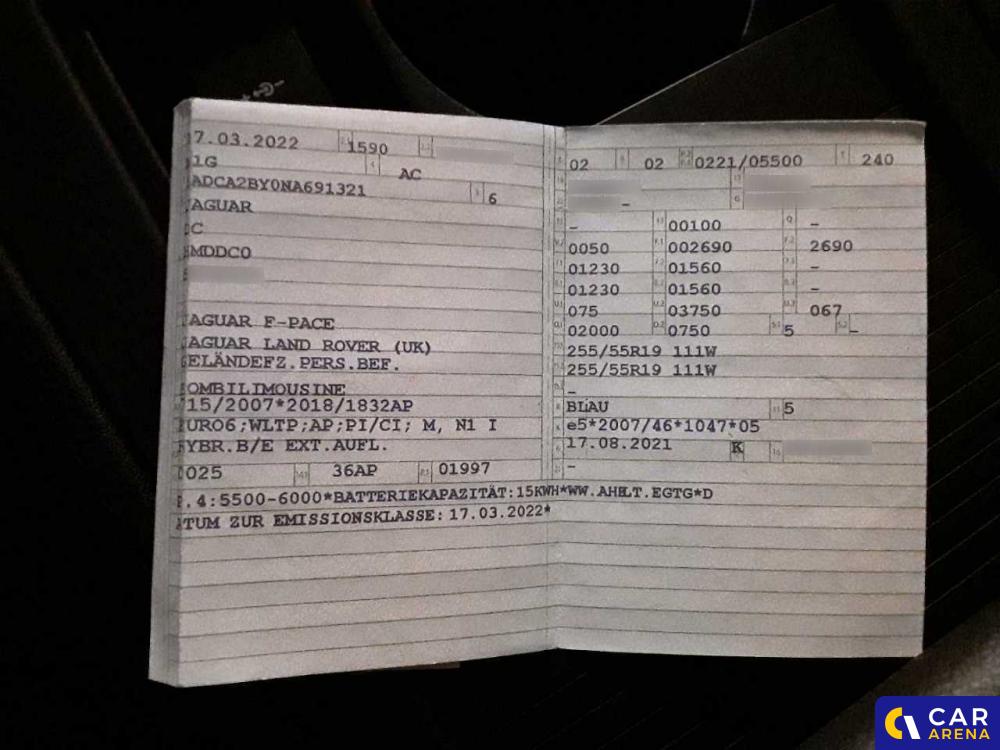 7.03.2022 1590
1G AC
ADCA2BY0NA691321 6
AGUAR
C
MDDC0
AGUAR F-PACE
AGUAR LAND ROVER (UK)
ELÄNDEFZ.PERS.BEF.
OMBILIMOUSINE
715/2007*2018/1832AP
EURO6;WLTP;AP;PI/CI; M, N1 I
YBR.B/E EXT.AUFL.
0025 36AP 01997
P.4:5500-6000*BATTERIEKAPAZITÄT:15KWH*WW.AHK LT.EGTG*D
ATUM ZUR EMISSIONSKLASSE:17.03.2022*
02 02 0221/05500 240
–
– 00100 –
0050 002690 2690
01230 01560 –
01230 01560 –
075 03750 067
02000 0750 5 –
255/55R19 111W
255/55R19 111W
–
BLAU 5
e5*2007/46*1047*05
17.08.2021 K
–
CAR
ARENA